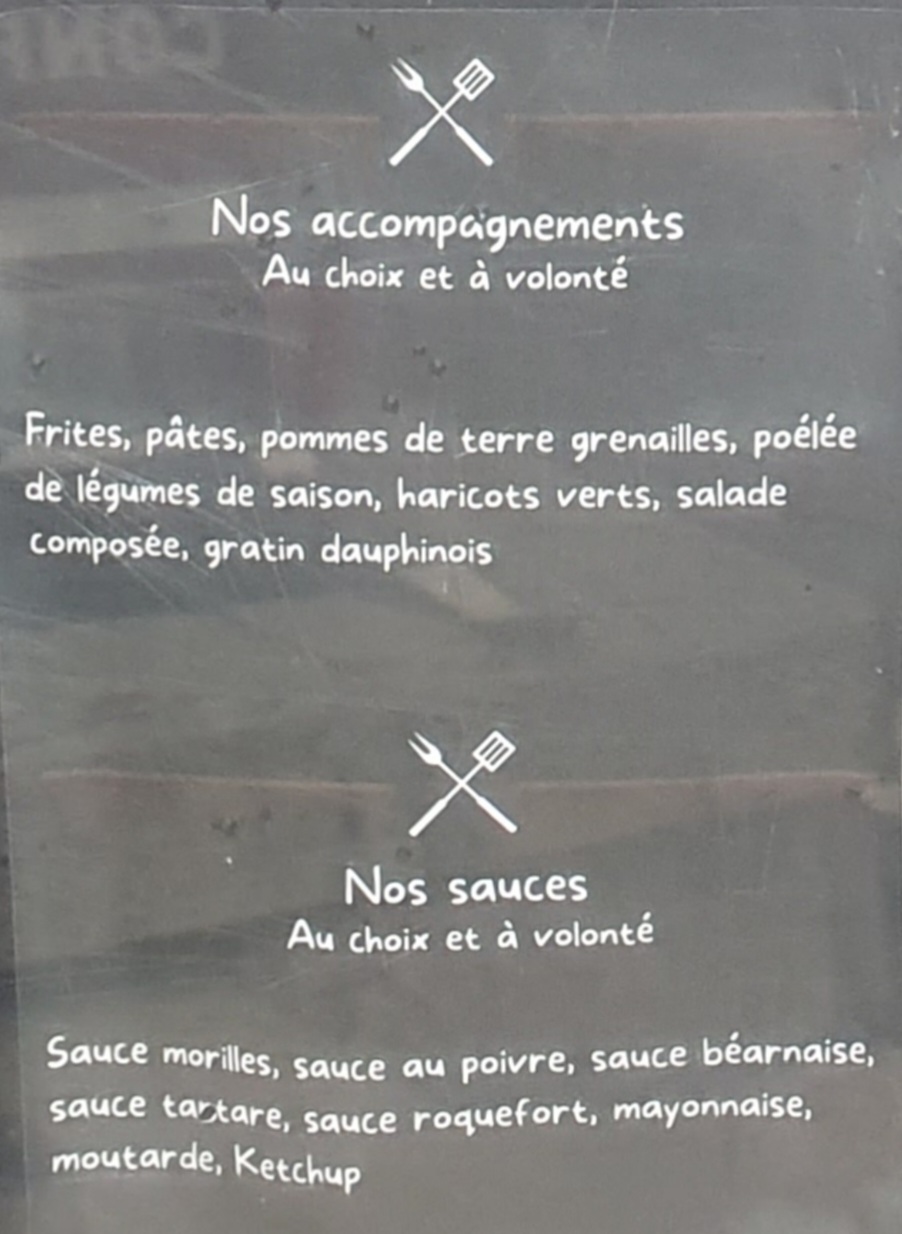 Nos accompagnements
Au choix et à volonté
Frites, pâtes, pommes de terre grenailles, poélée
de légumes de saison, haricots verts, salade
composée, gratin dauphinois
Nos sauces
Au choix et à volonté
Sauce morilles, sauce au poivre, sauce béarnaise,
sauce tartare, sauce roquefort, mayonnaise,
moutarde, Ketchup